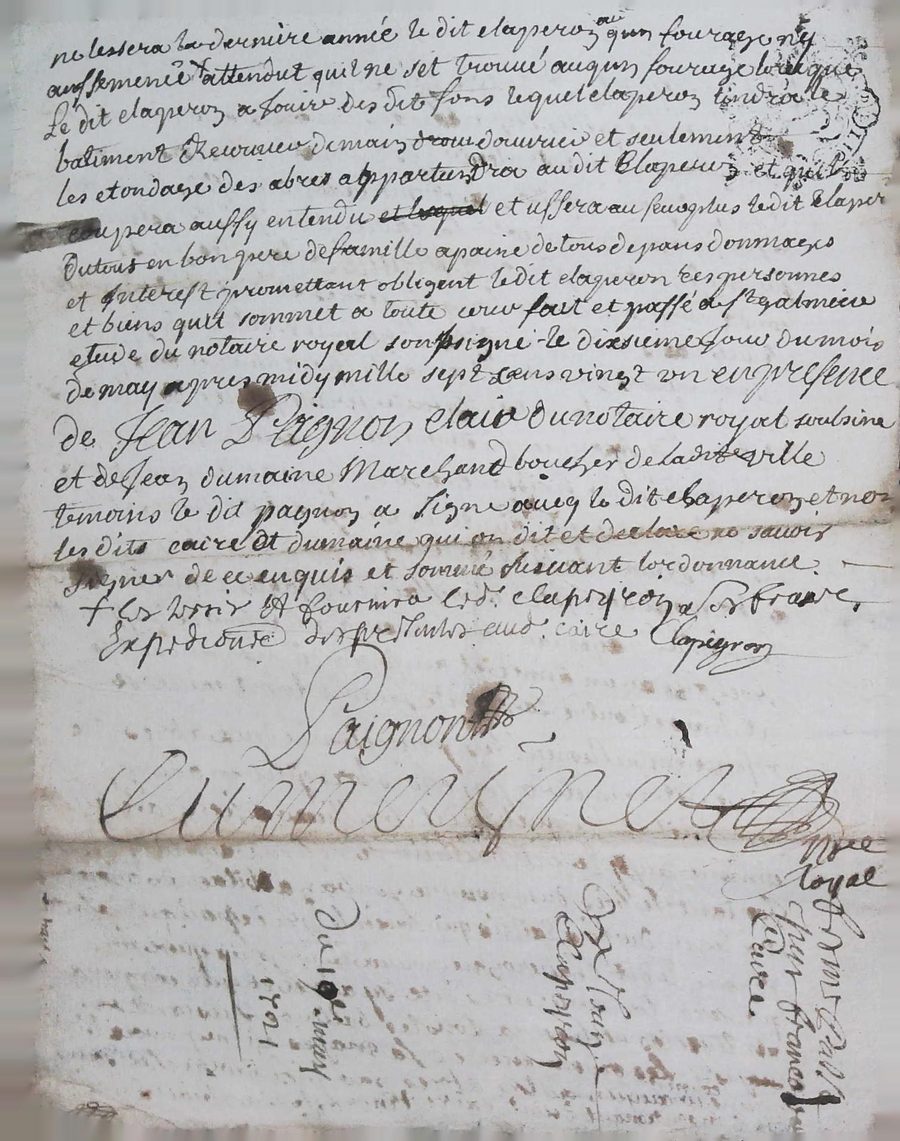 ne lessera la derniere année le dit claperon au qun fourage ny
aux semence + attendut quil ne set trouvé auqun fourage lorsque
Le dit claperon a Jouir des dit fons lequel claperon tindra le
batiment demain d'ouvrié et seulement
les etondage des abres appartendra au dit Claperon et quil
coupera aussy entendu et lequel et ussera au seurplus le dit claperon
Du tout en bon pere de famille a paine de tous depans dommages
et Interest promettant obligent le dit claperon ses personnes
et biens quil sommet a toute cour fait et passé a St galmier
etude du notaire royal soubsigné le dixsieme Jour du mois
de may apres midy mille sept sens vingt un en presence
de Jean Paignon claic du notaire royal soubsine
et de Jean dumaine Marchand boucher de la dite ville
temoins le dit pagnon a signe avecq le dit claperon et non
les dits caire et dumaine qui on dit et declaré ne savoir
signer de ce enquis et sommé suivant lordonnance
+ les et fournira le d. clapeyron a ses fraix
Expedition des presentes aud. caire Clapeyron
Paignon
nre
royal
Du 10e may
1721
Claperon
ferme passé
par francois
Caire